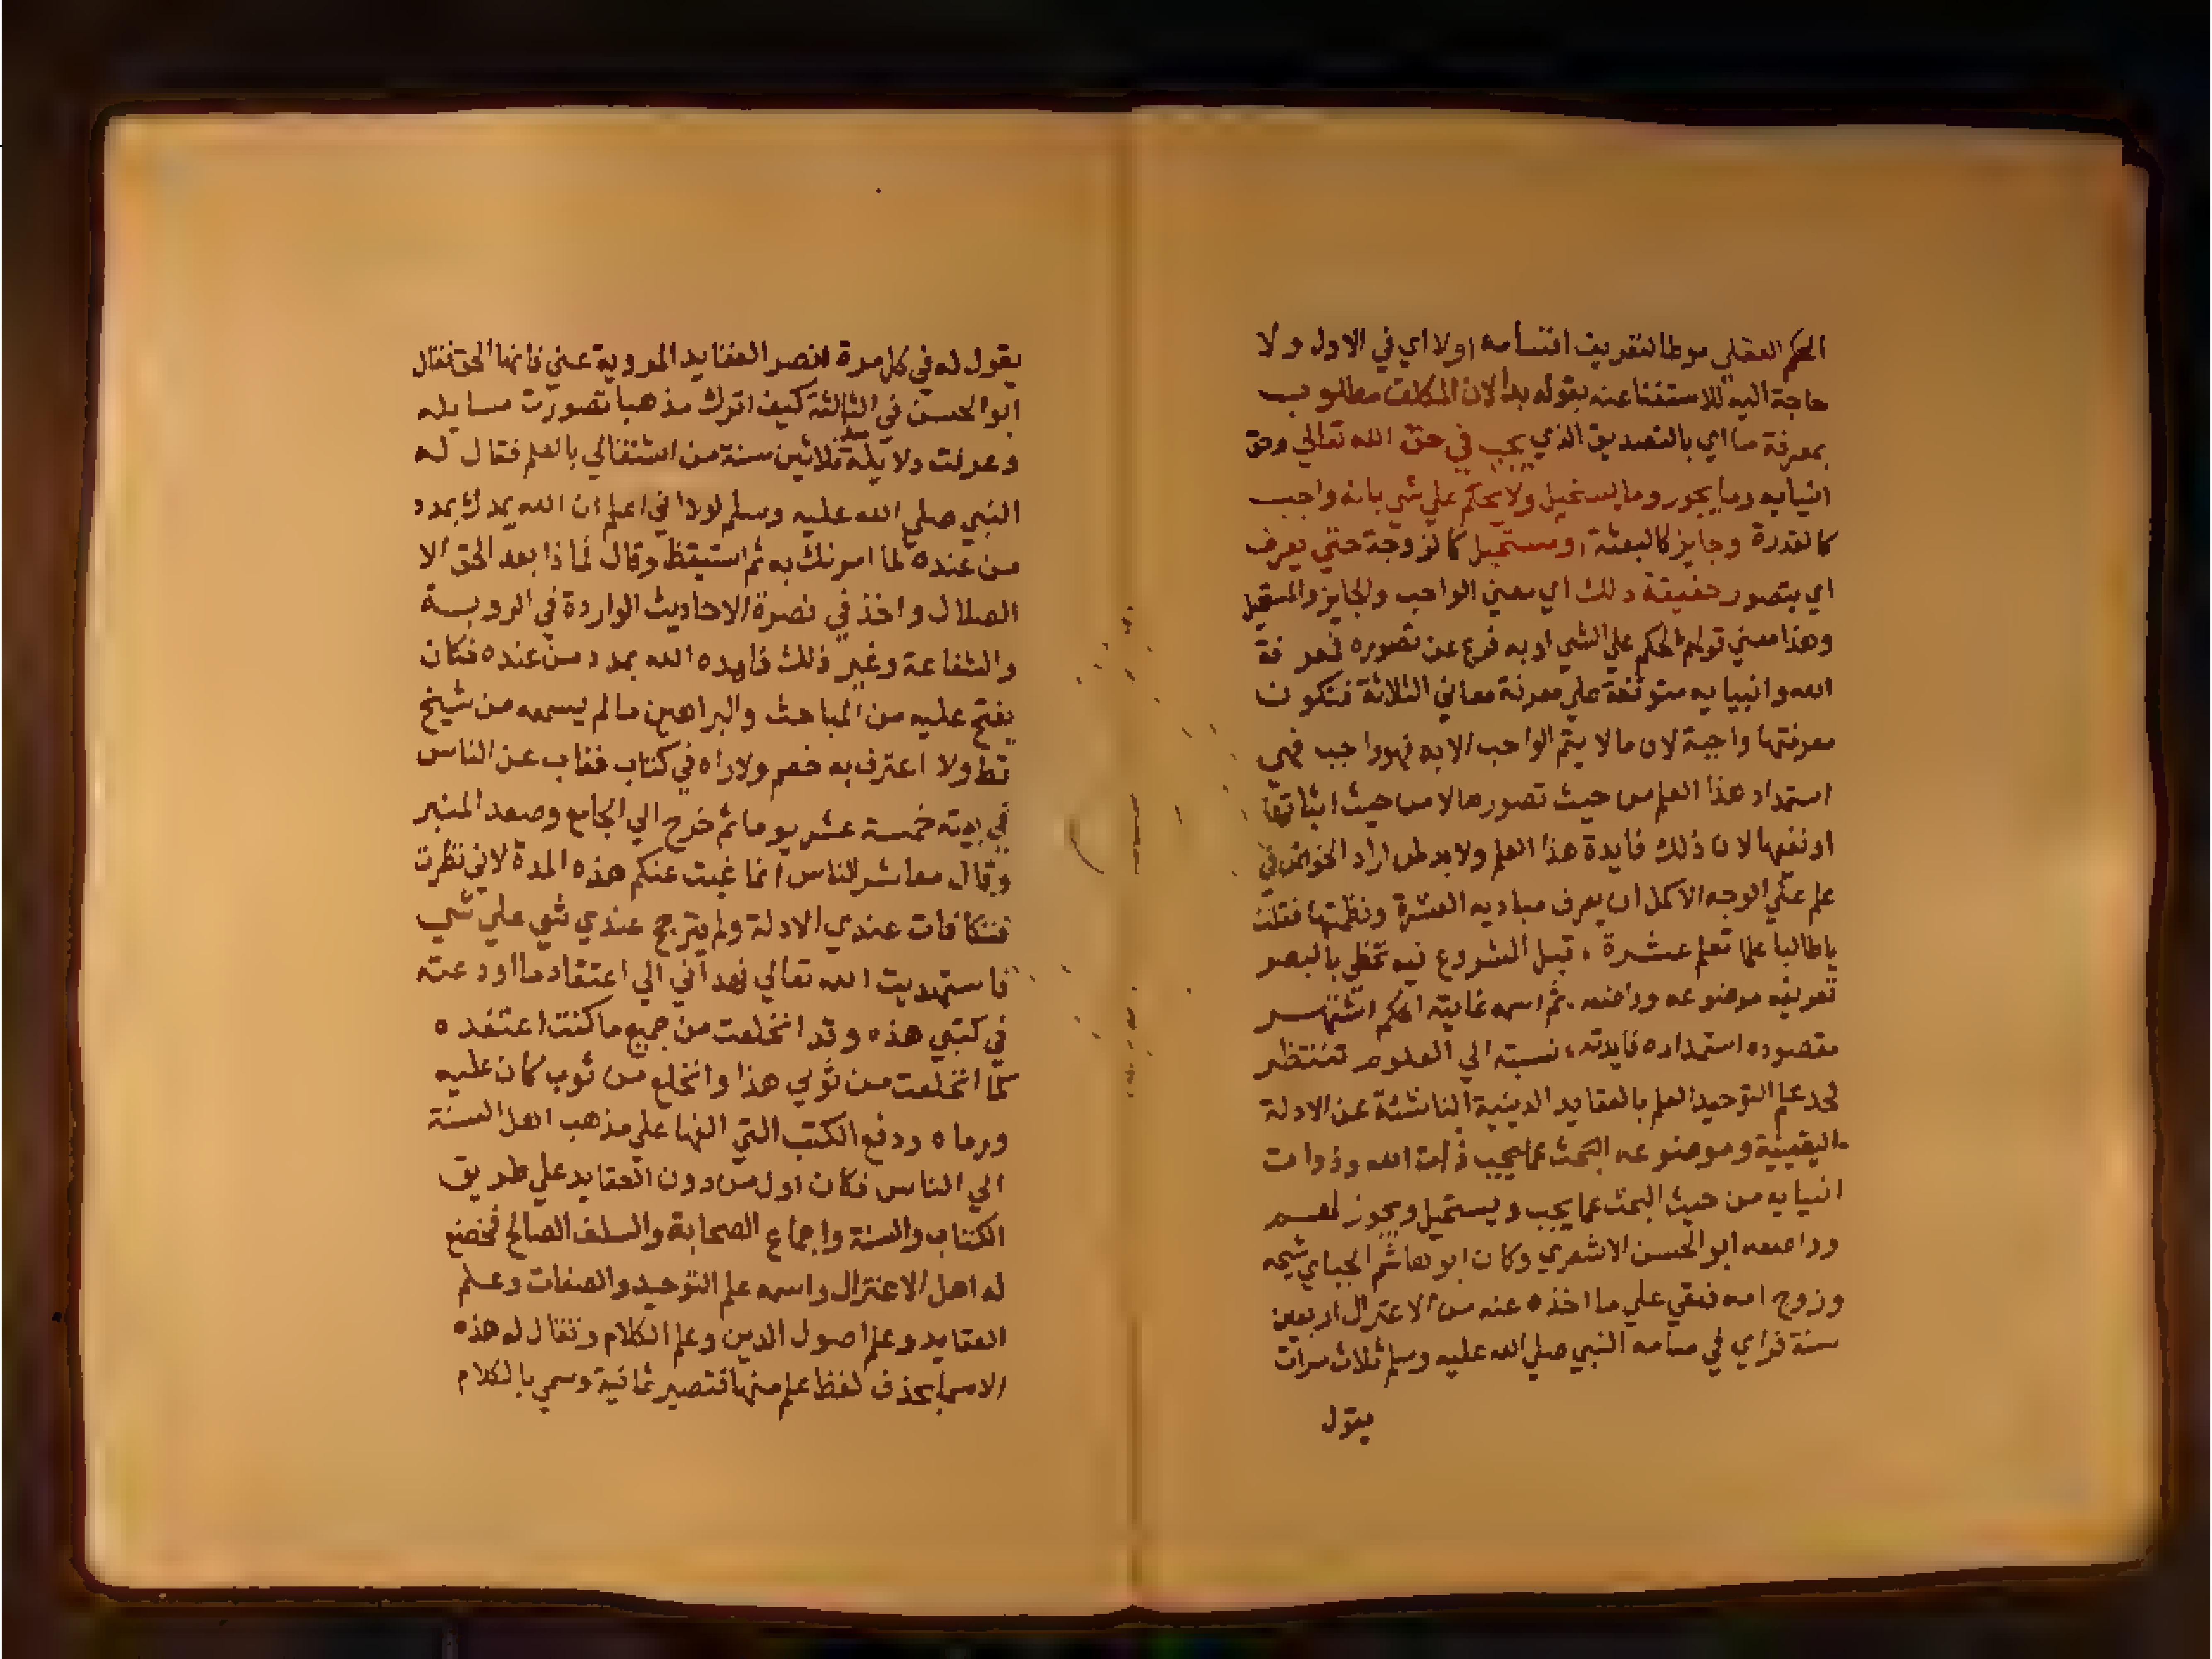 الحكم العقلي موطا لتعريف اقسامه اولا اي في الاول ولا
حاجة اليه للاستغنا عنه بقوله بدا لان المكلف مطلوب
بمعرفة ما اي بالتصديق الذي يجب في حق الله تعالي وحق
انبيايه وما يجوز وما يستحيل ولا يحكم علي شي بانه واجب
كالقدرة وجايز كالبعثة او مستحيل كالزوجة حتي يعرف
اي يتصور حقيقة ذلك اي معني الواجب والجايز والمستحيل
وهذا معني قولهم الحكم علي الشي او به فرع عن تصوره فمعرفة
الله وانبيايه متوقفة علي معرفة معاني الثلاثة فتكون
معرفتها واجبة لان ما لا يتم الواجب الا به فهو واجب فهي
استمداد هذا العلم من حيث تصورها لا من حيث اثباتها
او نفيها لان ذلك فايدة هذا العلم ولا بد لمن اراد الخوض في
علم علي الوجه الاكمل ان يعرف مباديه العشرة ونظمتها فقلت
يا طالبا علما تعلم عشرة ، قبل الشروع فيه تحظي بالبصر
تعريفه موضوعه وواضعه ، ثم اسمه غايته الحكم اشتهر
مقصوده استمداده فايدته ، نسبته الي العلوم تنتظر
فحد علم التوحيد العلم بالعقايد الدينية الناشئة عن الادلة
اليقينية وموضوعه البحث عما يجب ذات الله وذوات
انبيايه من حيث البحث عما يجب ويستحيل ويجوز لهم
وواضعه ابو الحسن الاشعري وكان ابو هاشم الجباي شيخه
وزوج امه فبقي علي ما اخذه عنه من الاعتزال اربعين
سنة فراي في منامه النبي صلي الله عليه وسلم ثلاث مرات
يقول
يقول له في كل مرة انصر العقايد المروية عني فانها الحق فقال
ابو الحسن في الثالثة كيف اترك مذهبا تصورت مسايله
وعرفت دلايله منذ ثلاثين سنة من اشتغالي بالعلم فقال له
النبي صلي الله عليه وسلم لولا اني اعلم ان الله يمدك بمدد
من عنده لما امرتك به ثم استيقظ وقال لماذا بعد الحق الا
الضلال واخذ في نصرة الاحاديث الواردة في الروية
والشفاعة وغير ذلك فامده الله بمدد من عنده فكان
يفتح عليه من المباحث والبراهين ما لم يسمعه من شيخ
قط ولا اعترف به خصم ولا راه في كتاب فغاب عن الناس
في بيته خمسة عشر يوما ثم خرج الي الجامع وصعد المنبر
وقال معاشر الناس انما غبت عنكم هذه المدة لاني نظرت
فتكافات عندي الادلة ولم يترجح عندي شي علي شي
فاستهديت الله تعالي فهداني الي اعتقاد ما اودعته
في كتبي هذه وقد انخلعت من جميع ما كنت اعتقده
كما انخلعت من ثوبي هذا وانخلع من ثوب كان عليه
ورماه ودفع الكتب التي الفها علي مذهب اهل السنة
الي الناس فكان اول من دون العقايد علي طريق
الكتاب والسنة واجماع الصحابة والسلف الصالح فخضع
له اهل الاعتزال واسمه علم التوحيد والصفات وعلم
العقايد وعلم اصول الدين وعلم الكلام وتقال له هذه
الاسما بحذف لفظ علم منها فتصير ثمانية وسمي بالكلام